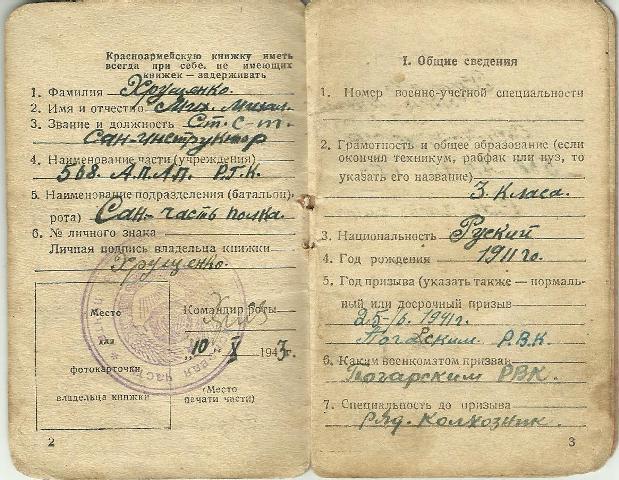 Красноармейскую книжку иметь
всегда при себе. не имеющих
книжек — задерживать
1. Фамилия Хрущенко.
2. Имя и отчество Мих. Михал.
3. Звание и должность Ст. с-т.
Сан-инструктор
4. Наименование части (учреждения)
568. А.П.А.П. Р.Г.К.
5. Наименование подразделения (батальон,
рота) Сан-часть полка.
6. № личного знака
Личная подпись владельца книжки
Хрущенко.
Командир роты
Место
для
фотокарточки
владельца книжки
„10" X 1943г.
(Место
печати части)
2
I. Общие сведения
1. Номер военно-учетной специальности
2. Грамотность и общее образование (если
окончил техникум, рабфак или вуз, то
указать его название)
3. Класа.
3. Национальность Руский
4. Год рождения 1911 го.
5. Год призыва (указать также — нормаль-
ный или досрочный призыв
1941г.
Р.В.К.
6. Каким военкоматом призван
Погарским РВК.
7. Специальность до призыва
Ряд. Колхозник.
3